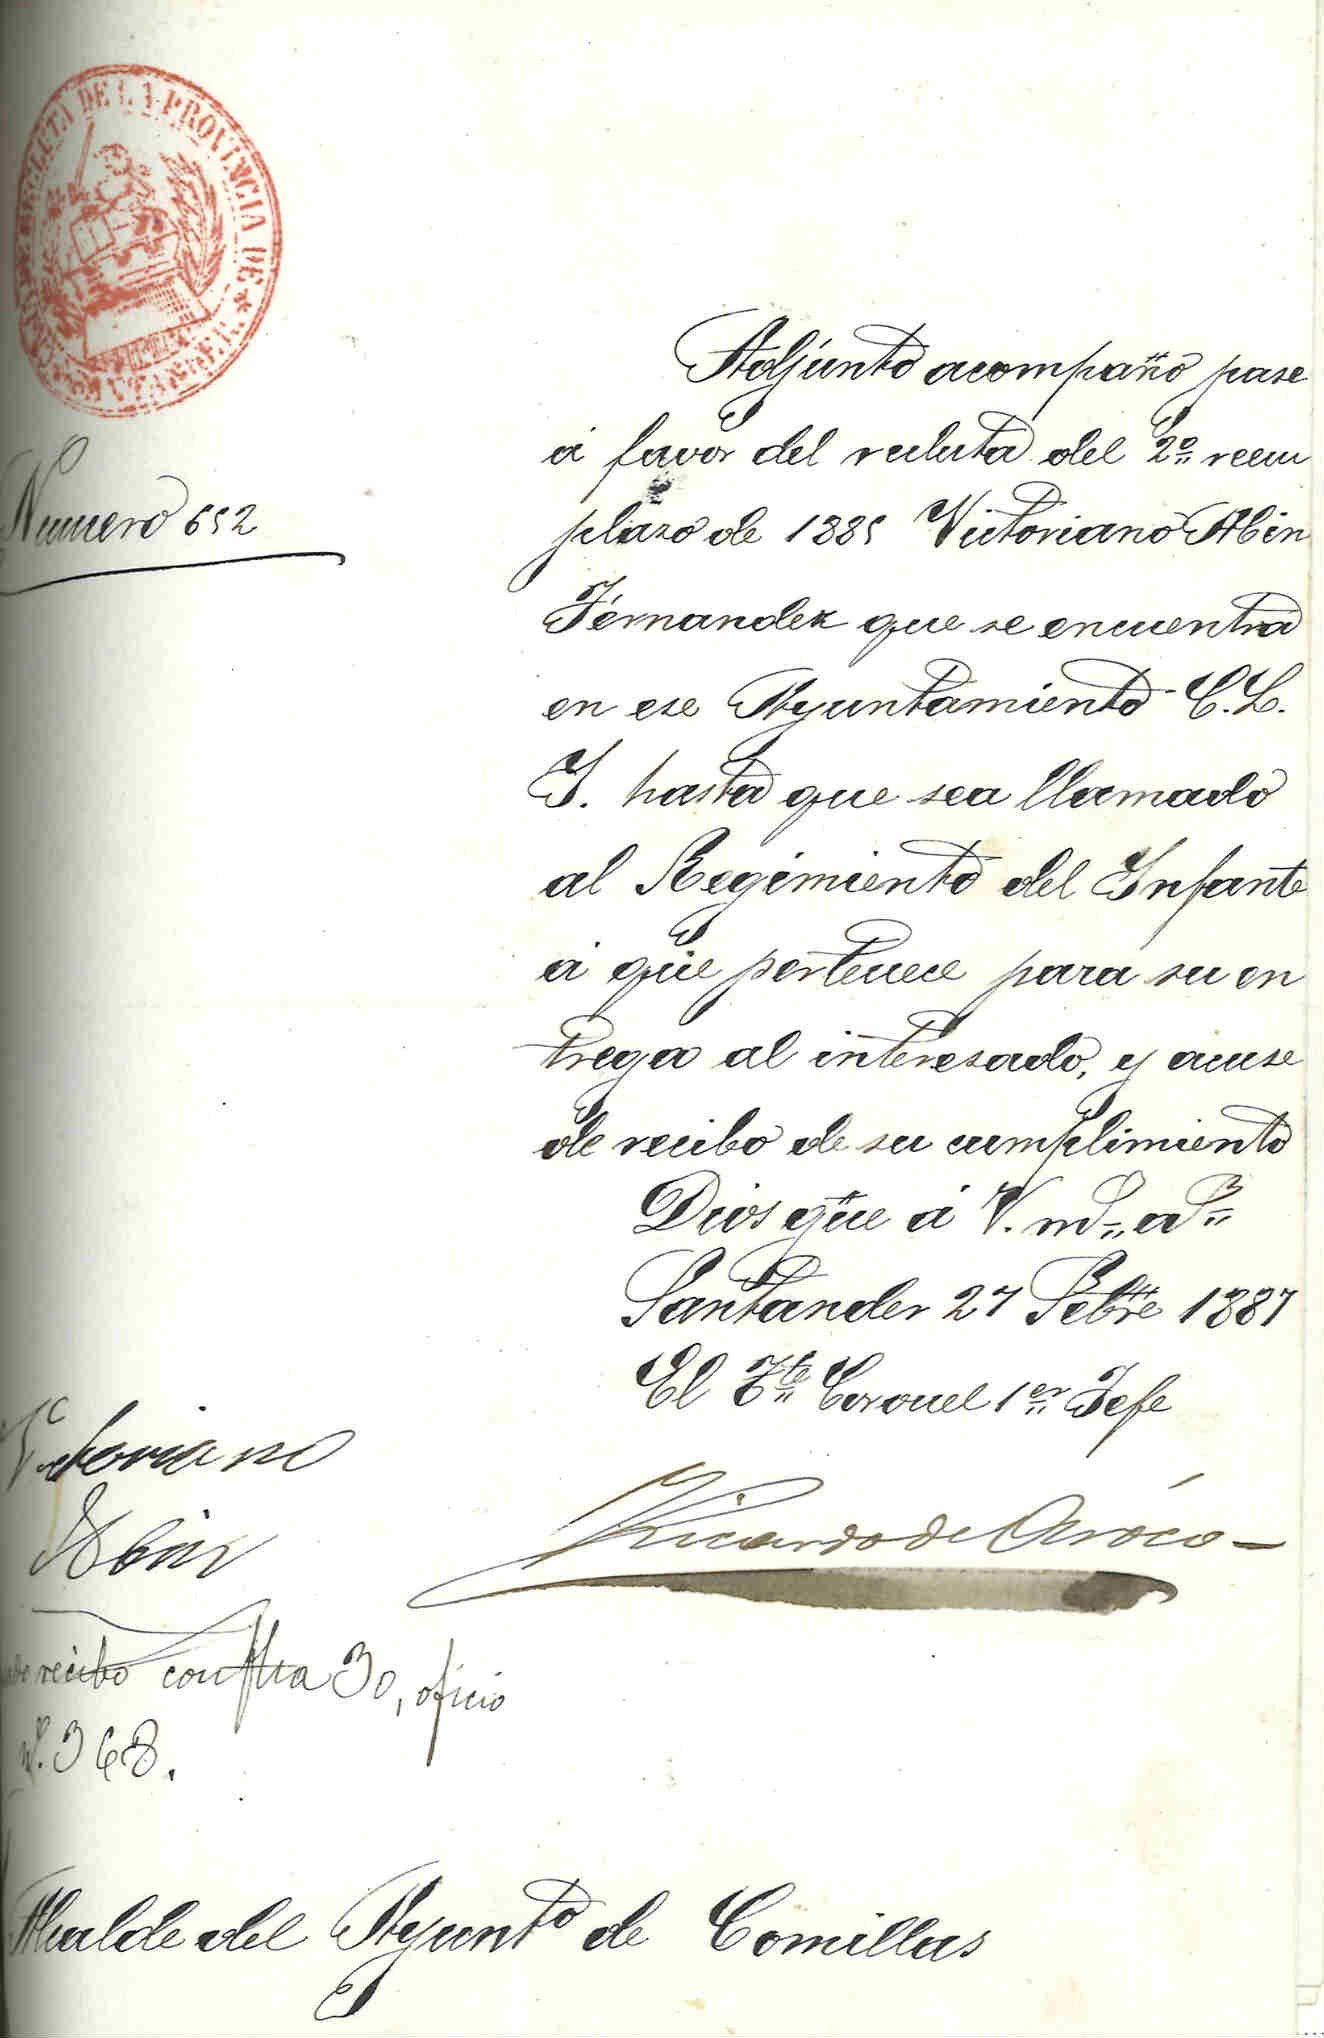 RECLUTA DE LA PROVINCIA DE
Numero 652
Adjunto acompaño pase
á favor del recluta del 2º reem
plazo de 1885 Victoriano Abin
Fernandez que se encuentra
en ese Ayuntamiento C. L.
I. hasta que sea llamado
al Regimiento del Infante
á que pertenece para su en
trega al interesado, y acuse
de recibo de su cumplimiento
Dios gue á V. ms as
Santander 27 Febre 1887
El Tte Coronel 1er Jefe
Ricardo de
Victoriano
Abin
recibo con fha 30, oficio
n. 368.
Alcalde del Ayunto de Comillas